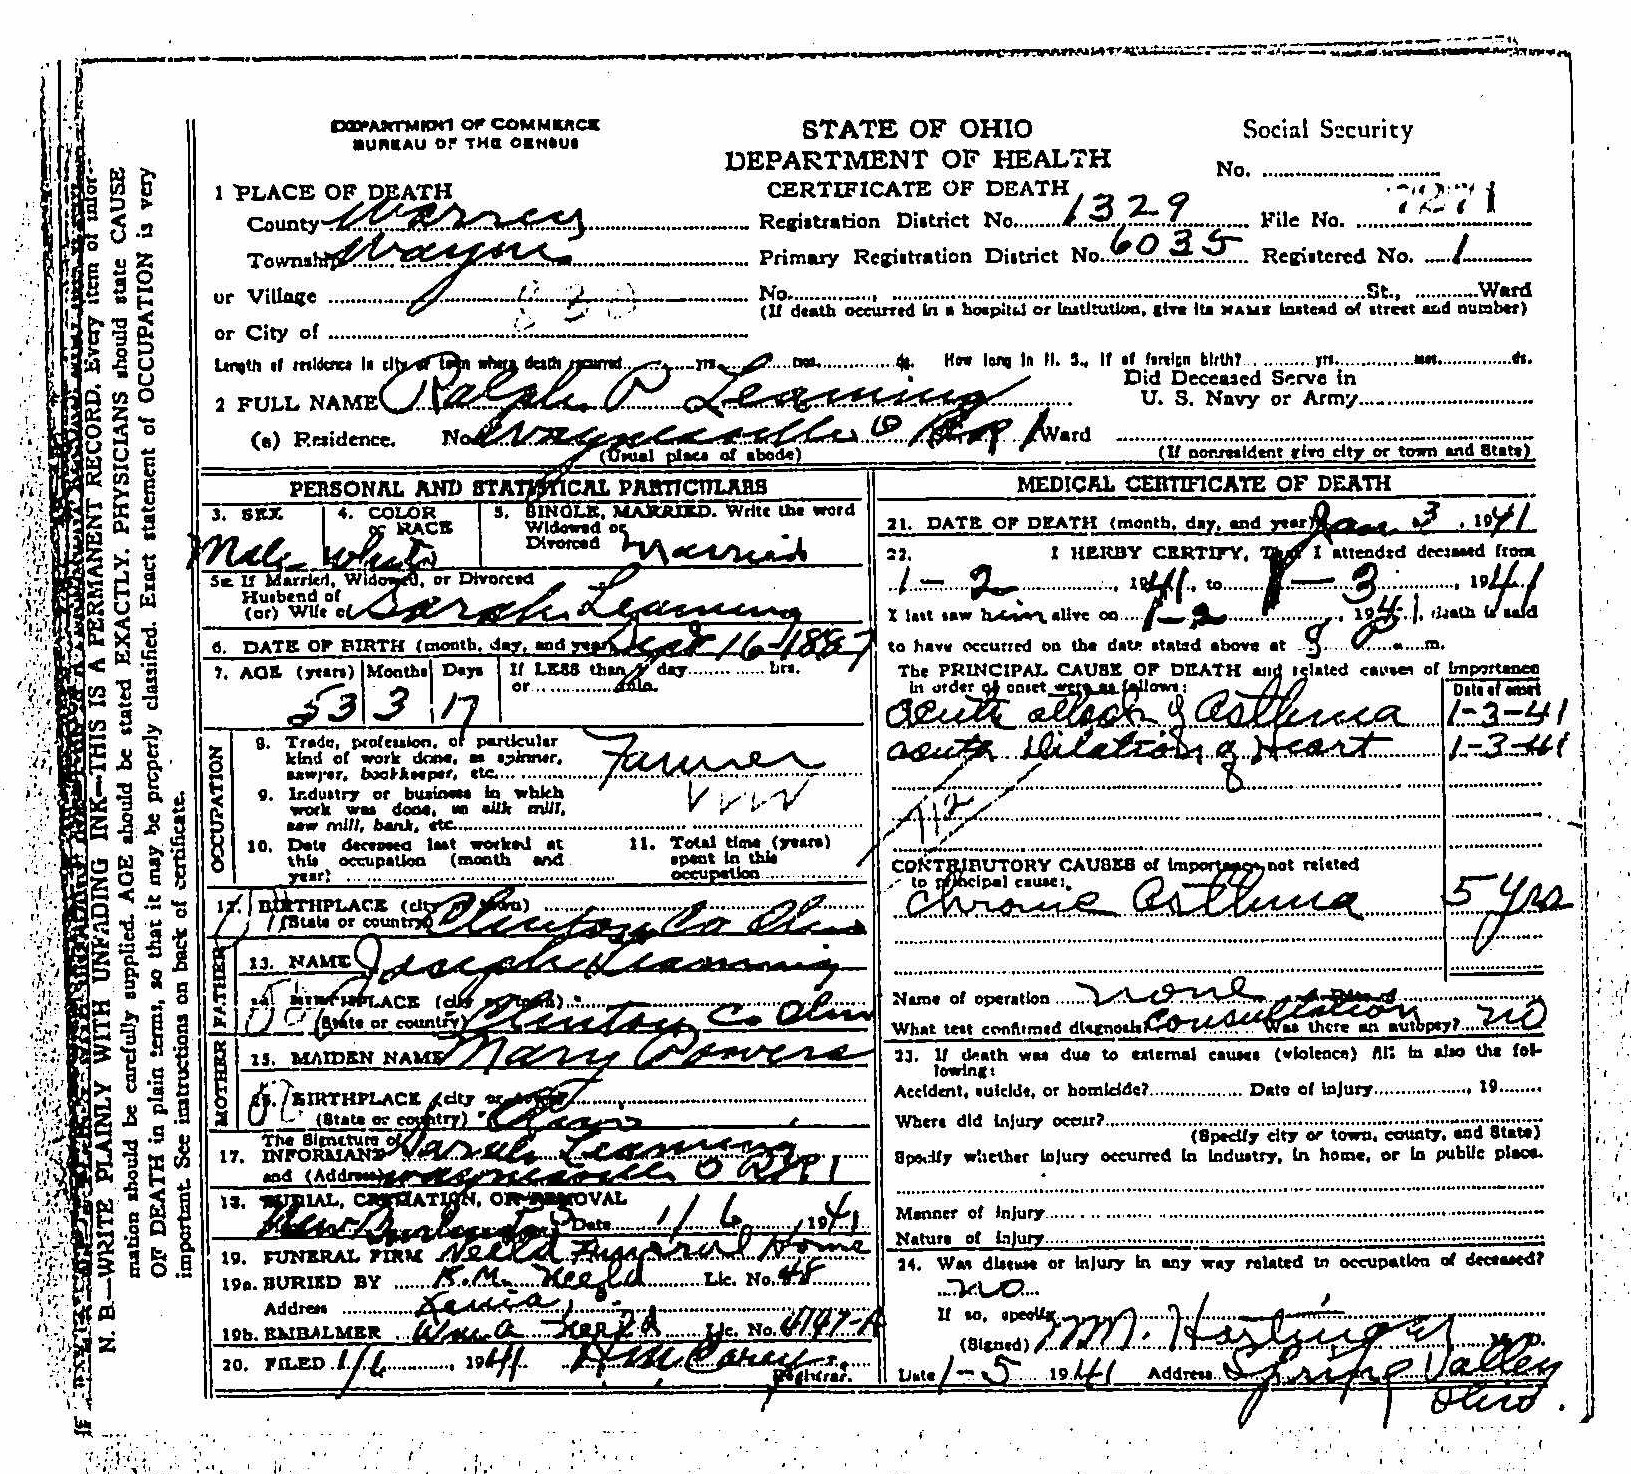 DEPARTMENT OF COMMERCE
BUREAU OF THE CENSUS
STATE OF OHIO
DEPARTMENT OF HEALTH
CERTIFICATE OF DEATH
Social Security
No.
1 PLACE OF DEATH
County Warren
Registration District No. 1329 File No. 7271
Township Wayne
Primary Registration District No. 6035 Registered No. 1
or Village
No. St., Ward
(If death occurred in a hospital or institution, give its NAME instead of street and number)
or City of
Length of residence in city or town where death occurred yrs. mos. ds. How long in U. S., if of foreign birth? yrs. mos. ds.
2 FULL NAME Ralph P Leaming
Did Deceased Serve in
U. S. Navy or Army
(a) Residence. No. Waynesville O R R 1 Ward
(Usual place of abode) (If nonresident give city or town and State)
PERSONAL AND STATISTICAL PARTICULARS
3. SEX Male
4. COLOR or RACE White
5. SINGLE, MARRIED. Write the word
Widowed or
Divorced Married
5a If Married, Widowed, or Divorced
Husband of
(or) Wife of Sarah Leaming
6. DATE OF BIRTH (month, day, and year) Sept 16-1887
7. AGE (years) Months Days If LESS than 1 day hrs.
or min.
53 3 17
OCCUPATION
8. Trade, profession, or particular
kind of work done, as spinner,
sawyer, bookkeeper, etc. Farmer
9. Industry or business in which
work was done, as silk mill,
saw mill, bank, etc.
10. Date deceased last worked at
this occupation (month and
year)
11. Total time (years)
spent in this
occupation
12. BIRTHPLACE (city or town)
(State or country) Clinton Co Ohio
FATHER
13. NAME Joseph Leaming
14. BIRTHPLACE (city or town)
(State or country) Clinton Co Ohio
MOTHER
15. MAIDEN NAME Mary Powers
16. BIRTHPLACE (city or town)
(State or country) Ohio
17. The Signature of
INFORMANT Sarah Leaming
and (Address) Waynesville O R R 1
18. BURIAL, CREMATION, OR REMOVAL
New Burlington O Date 1/6 1941
19. FUNERAL FIRM Neeld Funeral Home
19a. BURIED BY R.M. Neeld Lic. No. 48
Address Xenia
19b. EMBALMER Wm A Neeld Lic. No. 4747-A
20. FILED 1/6, 1941 H M Carey
Registrar.
MEDICAL CERTIFICATE OF DEATH
21. DATE OF DEATH (month, day, and year) Jan. 3, 1941
22. I HERBY CERTIFY, That I attended deceased from
1-2, 1941, to 1-3, 1941
I last saw him alive on 1-2, 1941, death is said
to have occurred on the date stated above at 8 P. m.
The PRINCIPAL CAUSE OF DEATH and related causes of importance
in order of onset were as follows: Date of onset
acute attack of Asthma 1-3-41
acute Dilation of Heart 1-3-41
112
CONTRIBUTORY CAUSES of importance not related
to principal cause:
Chronic Asthma 5 yrs
Name of operation none
What test confirmed diagnosis Consultation Was there an autopsy? no
23. If death was due to external causes (violence) fill in also the fol-
lowing:
Accident, suicide, or homicide? Date of injury, 19
Where did injury occur?
(Specify city or town, county, and State)
Specify whether injury occurred in industry, in home, or in public place.
Manner of injury
Nature of injury
24. Was disease or injury in any way related to occupation of deceased?
no
If so, specify
(Signed) M. Hartinger M.D.
Date 1-5 1941 Address Spring Valley
Ohio.
N. B.—WRITE PLAINLY WITH UNFADING INK—THIS IS A PERMANENT RECORD. Every item of infor-
mation should be carefully supplied. AGE should be stated EXACTLY. PHYSICIANS should state CAUSE
OF DEATH in plain terms, so that it may be properly classified. Exact statement of OCCUPATION is very
important. See instructions on back of certificate.